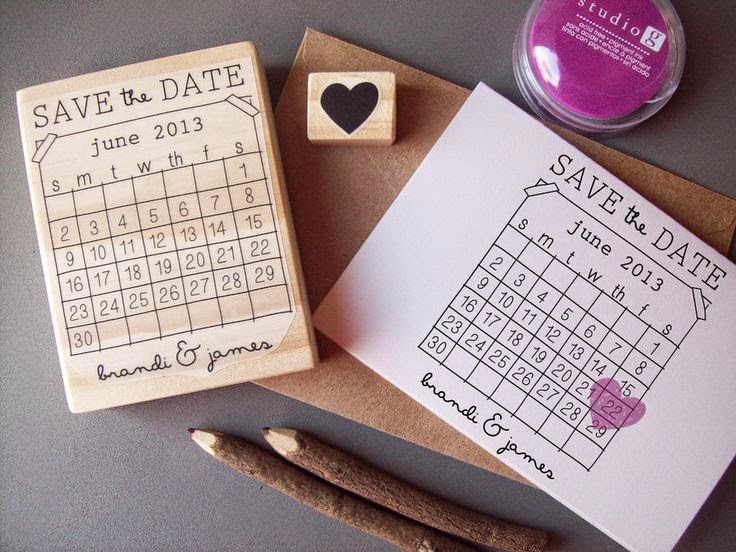 SAVE the DATE
june 2013
s m t w th f s
1
2 3 4 5 6 7 8
9 10 11 12 13 14 15
16 17 18 19 20 21 22
23 24 25 26 27 28 29
30
brandi & james
studio g
acid free • pigment ink
sans acide • encre à pigment
tinta con pigmentos • sin ácido
SAVE the DATE
june 2013
s m t w th f s
1
2 3 4 5 6 7 8
9 10 11 12 13 14 15
16 17 18 19 20 21 22
23 24 25 26 27 28 29
30
brandi & james